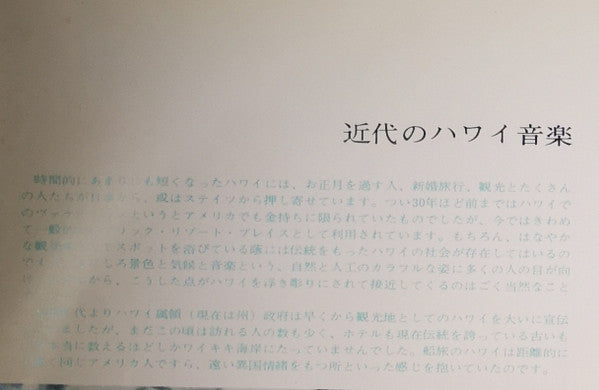 近代のハワイ音楽
時間的にあまりにも短くなったハワイには、お正月を過す人、新婚旅行、観光とたくさん
の人たちが日本から、或はステイツから押し寄せています。つい30年ほど前まではハワイで
のヴァケイションというとアメリカでも金持ちに限られていたものでしたが、今ではきわめ
て一般的 リック・リゾート・プレイスとして利用されています。もちろん、はなやか
な観光 スポットを浴びている蔭には伝統をもったハワイの社会が存在してはいるの
で しろ景色と気候と音楽という、自然と人工のカラフルな姿に多くの人の目が向
から、こうした点がハワイを浮き彫りにされて接近してくるのはごく当然なこと
代よりハワイ属領（現在は州）政府は早くから観光地としてのハワイを大いに宣伝
ましたが、まだこの頃は訪れる人の数も少く、ホテルも現在伝統を誇っている古いも
本当に数えるほどしかワイキキ海岸にたっていませんでした。船旅のハワイは距離的に
同じアメリカ人ですら、遠い異国情緒をもつ所といった感じを抱いていたのです。